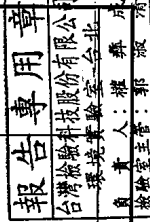 報告專用章
台灣檢驗科技股份有限公
環境實驗室-台北
負責人：楊彝成
檢驗室主管：郭淑清